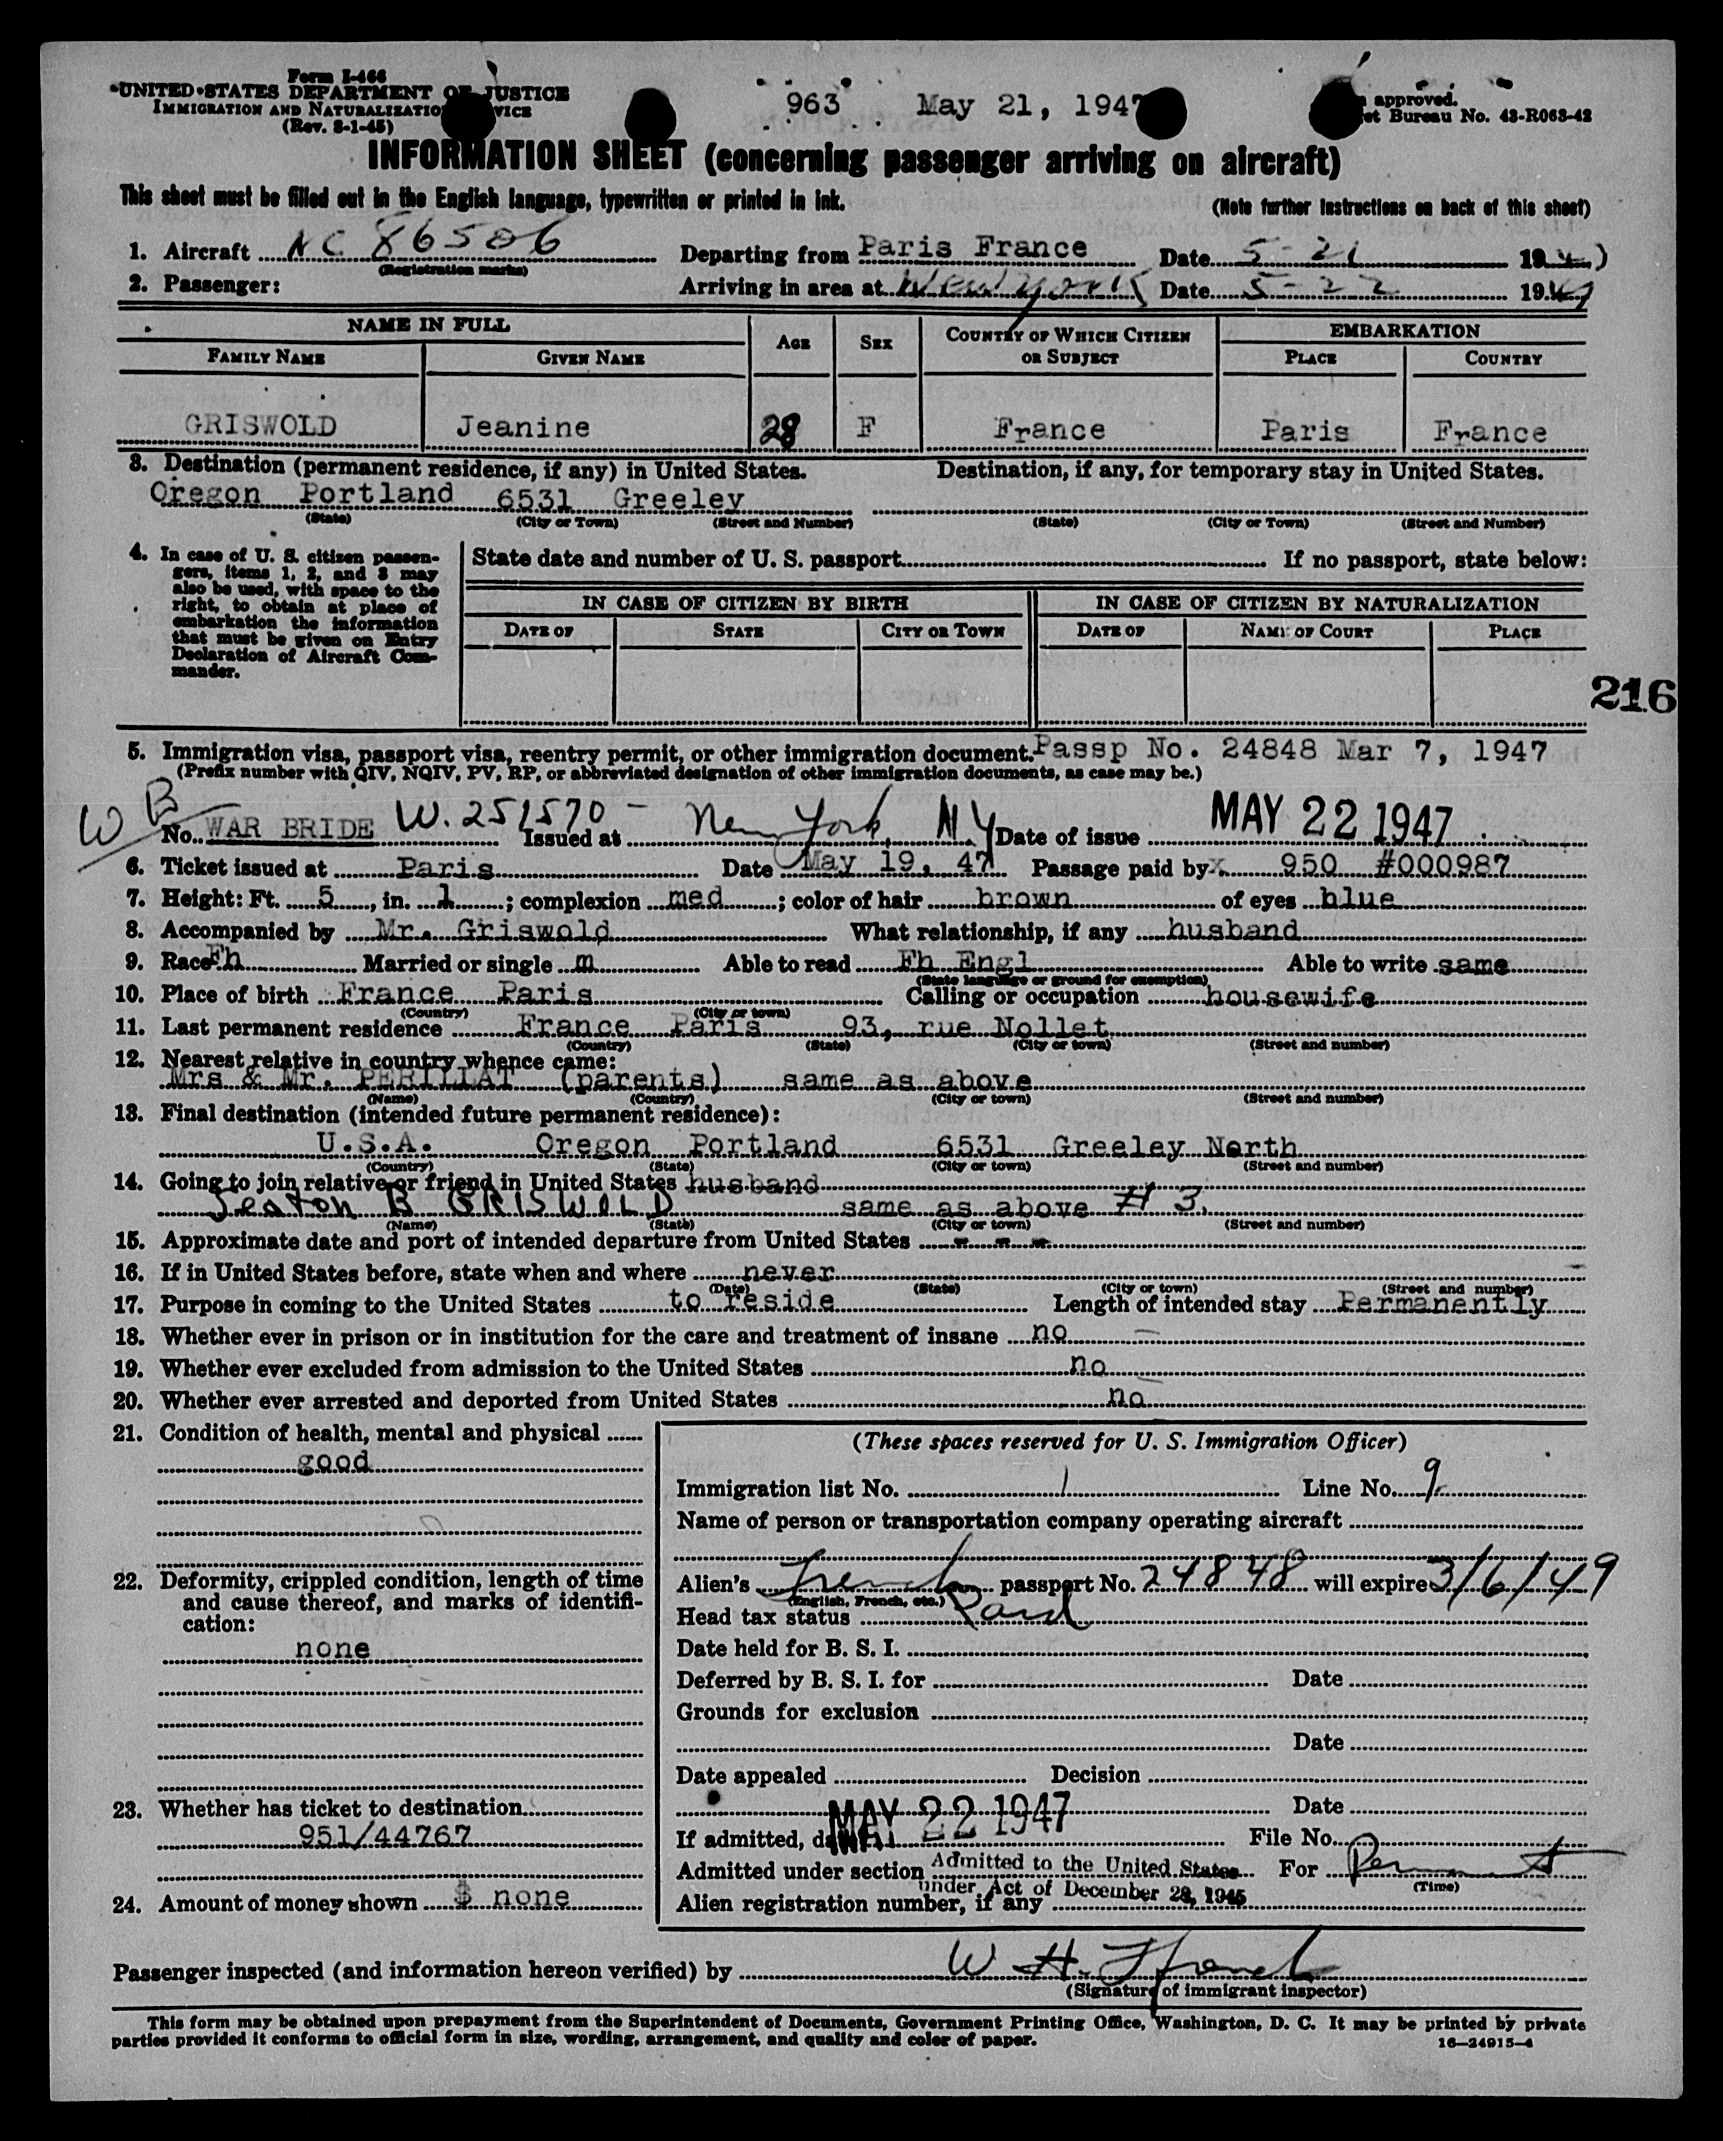 Form I-466
UNITED STATES DEPARTMENT OF JUSTICE
IMMIGRATION AND NATURALIZATION SERVICE
(Rev. 8-1-45)
963 May 21, 1947
approved.
et Bureau No. 43-R063-42
INFORMATION SHEET (concerning passenger arriving on aircraft)
This sheet must be filled out in the English language, typewritten or printed in ink.
(Note further instructions on back of this sheet)
1. Aircraft NC 86506 Departing from Paris France Date 5-21 1947
(Registration marks)
2. Passenger: Arriving in area at New York Date 5-22 1947
NAME IN FULL AGE SEX COUNTRY OF WHICH CITIZEN OR SUBJECT EMBARKATION
FAMILY NAME GIVEN NAME PLACE COUNTRY
GRISWOLD Jeanine 28 F France Paris France
3. Destination (permanent residence, if any) in United States. Destination, if any, for temporary stay in United States.
Oregon Portland 6531 Greeley
(State) (City or Town) (Street and Number) (State) (City or Town) (Street and Number)
4. In case of U. S. citizen passengers, items 1, 2, and 3 may also be used, with space to the right, to obtain at place of embarkation the information that must be given on Entry Declaration of Aircraft Commander.
State date and number of U. S. passport If no passport, state below:
IN CASE OF CITIZEN BY BIRTH IN CASE OF CITIZEN BY NATURALIZATION
DATE OF STATE CITY OR TOWN DATE OF NAME OF COURT PLACE
216
5. Immigration visa, passport visa, reentry permit, or other immigration document. Passp No. 24848 Mar 7, 1947
(Prefix number with QIV, NQIV, PV, RP, or abbreviated designation of other immigration documents, as case may be.)
WB
No. WAR BRIDE W. 251570 - Issued at New York, NY Date of issue MAY 22 1947
6. Ticket issued at Paris Date May 19, 47 Passage paid by x 950 #000987
7. Height: Ft. 5, in. 1; complexion med; color of hair brown of eyes blue
8. Accompanied by Mr. Griswold What relationship, if any husband
9. Race Fh Married or single m Able to read Fh Engl Able to write same
(State language or ground for exemption)
10. Place of birth France Paris Calling or occupation housewife
(Country) (City or town)
11. Last permanent residence France Paris 93, rue Nollet
(Country) (State) (City or town) (Street and number)
12. Nearest relative in country whence came:
Mrs & Mr. PERILLAT (parents) same as above
(Name) (Country) (City or town) (Street and number)
13. Final destination (intended future permanent residence):
U.S.A. Oregon Portland 6531 Greeley North
(Country) (State) (City or town) (Street and number)
14. Going to join relative or friend in United States husband
Seaton B GRISWOLD same as above # 3.
(Name) (State) (City or town) (Street and number)
15. Approximate date and port of intended departure from United States - - -
16. If in United States before, state when and where never
(Date) (State) (City or town) (Street and number)
17. Purpose in coming to the United States to reside Length of intended stay Permanently
18. Whether ever in prison or in institution for the care and treatment of insane no
19. Whether ever excluded from admission to the United States no
20. Whether ever arrested and deported from United States no
21. Condition of health, mental and physical
good
22. Deformity, crippled condition, length of time and cause thereof, and marks of identification:
none
23. Whether has ticket to destination
951/44767
24. Amount of money shown $ none
(These spaces reserved for U. S. Immigration Officer)
Immigration list No. 1 Line No. 9
Name of person or transportation company operating aircraft
Alien's French passport No. 24848 will expire 3/6/49
(English, French, etc.)
Head tax status Paid
Date held for B. S. I.
Deferred by B. S. I. for Date
Grounds for exclusion
Date
Date appealed Decision
Date
If admitted, date MAY 22 1947 File No.
Admitted under section Admitted to the United States For Permanent
under Act of December 28, 1945 (Time)
Alien registration number, if any
Passenger inspected (and information hereon verified) by W H.
(Signature of immigrant inspector)
This form may be obtained upon prepayment from the Superintendent of Documents, Government Printing Office, Washington, D. C. It may be printed by private
parties provided it conforms to official form in size, wording, arrangement, and quality and color of paper.
16—24915-4